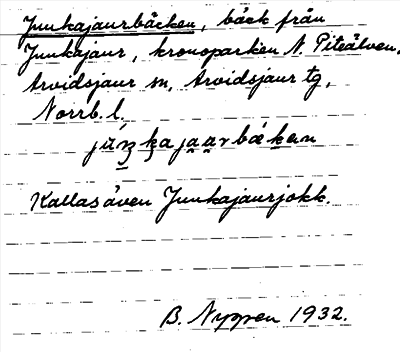 Junkajaurbäcken, bäck från
Junkajaur, kronoparken N. Piteälven,
Arvidsjaur sn, Arvidsjaur tg,
Norrb. l.
Kallas även Junkajaurjokk.
B. Nygren 1932.